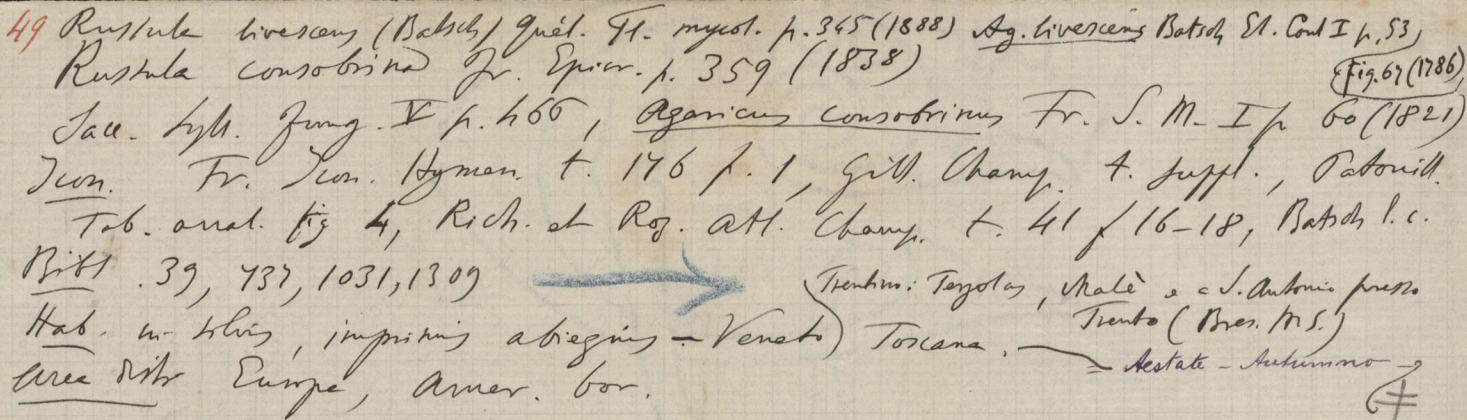 49 Russula livescens (Batsch) Quél. Fl. mycol. p. 345 (1888) Ag. livescens Batsch El. Cont I p. 53,
fig. 67 (1786)
Russula consobrina Fr. Epicr. p. 359 (1838)
Sacc. Syll. Fung. V p. 466, Agaricus consobrinus Fr. S. M. I p 60 (1821)
Icon. Fr. Icon. Hymen. t. 176 f. 1, Gill. Champ. t. suppl., Patouill.
Tab. anal. fig 4, Rich. et Roz. Atl. Champ. t. 41 f 16-18, Batsch l. c.
Bibl. 39, 737, 1031, 1309
Trentino: Terzolas, Malè e a S. Antonio presso
Trento (Bres. MS.)
Hab. in silvis, imprimis abiegnis - Veneto) Toscana.
= Aestate - Autumno -
Area distr Europa, Amer. bor.